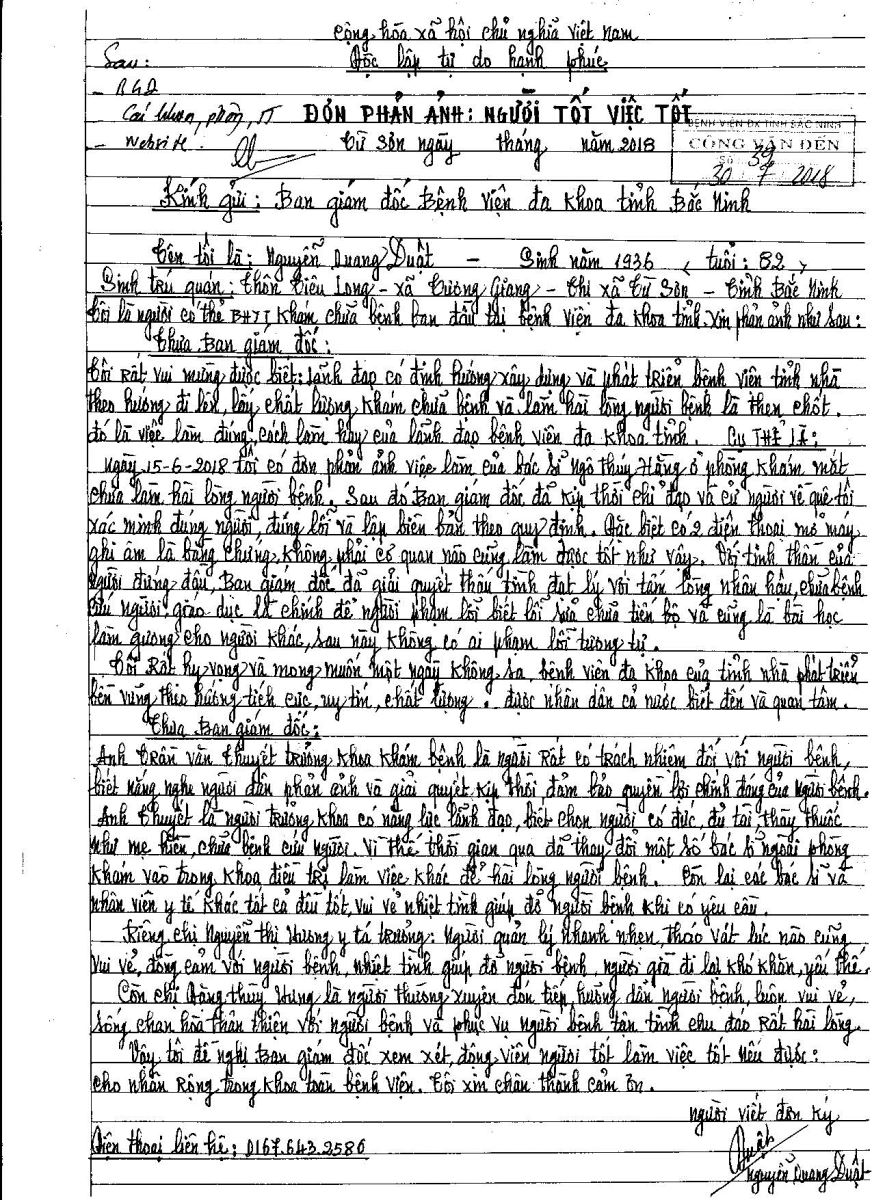 Cộng hòa xã hội chủ nghĩa Việt Nam
Độc lập tự do hạnh phúc
Sau:
- BGĐ
phòng, IT
- Website.
ĐƠN PHẢN ẢNH: NGƯỜI TỐT VIỆC TỐT
BỆNH VIỆN ĐK TỈNH BẮC NINH
CÔNG VĂN ĐẾN
Số 39
30 7 2018
Từ Sơn ngày tháng năm 2018
Kính gửi: Ban giám đốc Bệnh viện đa khoa tỉnh Bắc Ninh
Tên tôi là: Nguyễn Quang Duật - Sinh năm 1936 ( tuổi: 82 )
Sinh trú quán: Thôn Tiêu Long - xã Tương Giang - Thị xã Từ Sơn - Tỉnh Bắc Ninh
Tôi là người có thẻ BHYT khám chữa bệnh ban đầu tại bệnh viện đa khoa tỉnh xin phản ảnh như sau:
Thưa Ban giám đốc:
Tôi rất vui mừng được biết: lãnh đạo có định hướng xây dựng và phát triển bệnh viện tỉnh nhà
theo hướng đi lên, lấy chất lượng khám chữa bệnh và làm hài lòng người bệnh là then chốt.
đó là việc làm đúng, cách làm hay của lãnh đạo bệnh viện đa khoa tỉnh. CỤ THỂ LÀ:
Ngày 15-6-2018 tôi có đơn phản ảnh việc làm của bác sĩ Ngô Thúy Hằng ở phòng khám mắt
chưa làm hài lòng người bệnh. Sau đó Ban giám đốc đã kịp thời chỉ đạo và cử người về quê tôi
xác minh đúng người, đúng lỗi và lập biên bản theo quy định. Đặc biệt có 2 điện thoại mở máy
ghi âm là bằng chứng, không phải cơ quan nào cũng làm được tốt như vậy. Với tinh thần của
người đứng đầu, Ban giám đốc đã giải quyết thấu tình đạt lý với tấm lòng nhân hậu, chữa bệnh
cứu người, giáo dục là chính để người phạm lỗi biết lỗi sửa chữa tiến bộ và cũng là bài học
làm gương cho người khác, sau này không có ai phạm lỗi tương tự.
Tôi rất hy vọng và mong muốn một ngày không sa, bệnh viện đa khoa của tỉnh nhà phát triển
bền vững theo hướng tích cực, uy tín, chất lượng. được nhân dân cả nước biết đến và quan tâm.
Thưa Ban giám đốc:
Anh Trần Văn Thuyết trưởng khoa khám bệnh là người rất có trách nhiệm đối với người bệnh,
biết nắng nghe người dân phản ảnh và giải quyết kịp thời đảm bảo quyền lợi chính đáng của người bệnh.
Anh Thuyết là người trưởng khoa có năng lực lãnh đạo, biết chọn người có đức, đủ tài, thầy thuốc
như mẹ hiền, chữa bệnh cứu người. Vì thế thời gian qua đã thay đổi một số bác sĩ ngoài phòng
khám vào trong khoa điều trị làm việc khác để hài lòng người bệnh. Còn lại các bác sĩ và
nhân viên y tế khác tất cả đều tốt, vui vẻ nhiệt tình giúp đỡ người bệnh khi có yêu cầu.
Riêng chị Nguyễn Thị Hương y tá trưởng: Người quản lý nhanh nhẹn, tháo vát lúc nào cũng
vui vẻ, đồng cảm với người bệnh, nhiệt tình giúp đỡ người bệnh, người già đi lại khó khăn, yếu thế.
Còn chị Đặng Thùy Dung là người thường xuyên đón tiếp, hướng dẫn người bệnh, luôn vui vẻ,
sống chan hòa thân thiện với người bệnh và phục vụ người bệnh tận tình chu đáo rất hài lòng.
Vậy tôi đề nghị Ban giám đốc xem xét, động viên người tốt làm việc tốt nếu được:
cho nhân rộng trong khoa toàn bệnh viện. Tôi xin chân thành cảm ơn.
Người viết đơn ký
Điện thoại liên hệ: 0167.643.2586
Duật
Nguyễn Quang Duật